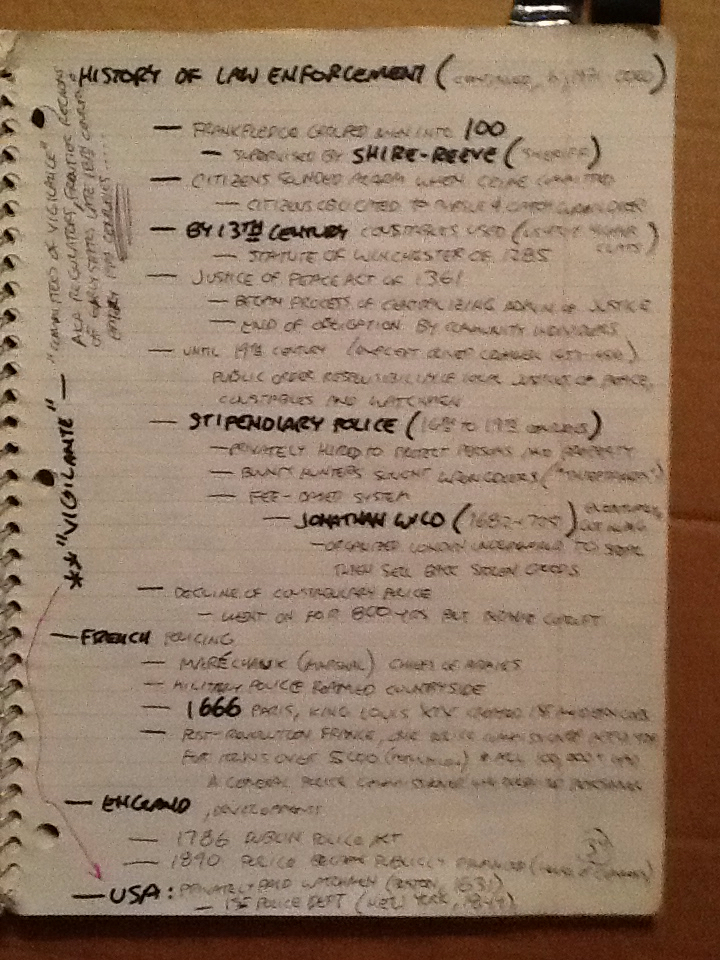 HISTORY OF LAW ENFORCEMENT (CONTINUED,
— FRANKPLEDGE GROUPED MEN INTO 100
— SUPERVISED BY SHIRE-REEVE (SHERIFF)
— CITIZENS SOUNDED ALARM WHEN CRIME COMMITTED
— CITIZENS OBLIGATED TO PURSUE & CATCH
— BY 13TH CENTURY CONSTABLES USED (
— STATUTE OF WINCHESTER OF 1285
— JUSTICE OF PEACE ACT OF 1361
— BEGAN PROCESS OF CENTRALIZING ADMIN OF JUSTICE
— END OF OBLIGATION BY COMMUNITY INDIVIDUALS
— UNTIL 19TH CENTURY (EXCEPT OLIVER CROMWELL
PUBLIC ORDER RESPONSIBILITY OF LOCAL JUSTICES OF PEACE,
CONSTABLES AND WATCHMEN
— STIPENDIARY POLICE (16TH TO 19TH CENTURIES)
— PRIVATELY HIRED TO PROTECT PERSONS AND PROPERTY
— BOUNTY HUNTERS SOUGHT WRONGDOERS ("THIEFTAKERS")
— FEE-BASED SYSTEM
— JONATHAN WILD (1682-1725)
— ORGANIZED LONDON UNDERWORLD TO STEAL
THEN SELL BACK STOLEN GOODS
— DECLINE OF CONSTABULARY POLICE
— WENT ON FOR 800 YRS BUT BECAME CORRUPT
— FRENCH POLICING
— MARÉCHAUX (MARSHAL)
— MILITARY POLICE ROAMED COUNTRYSIDE
— 1666 PARIS, KING LOUIS XIV CREATED 1ST
— POST-REVOLUTION FRANCE, ONE POLICE COMMISSIONER
FOR TOWNS OVER 5000 (POPULATION) & ALL 100,000+ HAD
A GENERAL POLICE COMMISSIONER
— ENGLAND, DEVELOPMENTS
— 1786 DUBLIN POLICE ACT
— POLICE BECAME PUBLICLY FINANCED
— USA: PRIVATELY PAID WATCHMEN (BOSTON, 1631)
— 1ST POLICE DEPT (NEW YORK,
** "VIGILANTE" — "COMMITTEES OF VIGILANCE"
AKA REGULATORS, FRONTIER REGIONS
OF EARLY STATES LATE 18TH CENTURY